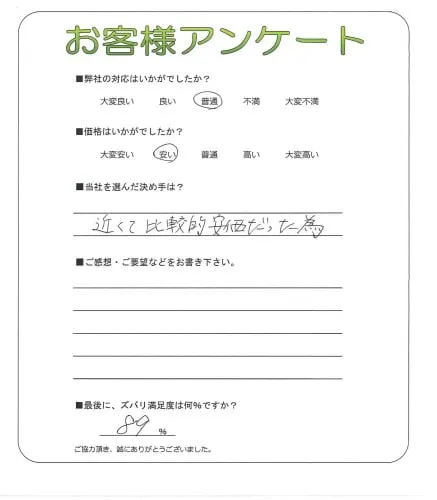 お客様アンケート
■弊社の対応はいかがでしたか？
大変良い 良い 普通 不満 大変不満
■価格はいかがでしたか？
大変安い 安い 普通 高い 大変高い
■当社を選んだ決め手は？
近くて比較的安価だった為
■ご感想・ご要望などをお書き下さい。
■最後に、ズバリ満足度は何％ですか？
89 ％
ご協力頂き、誠にありがとうございました。